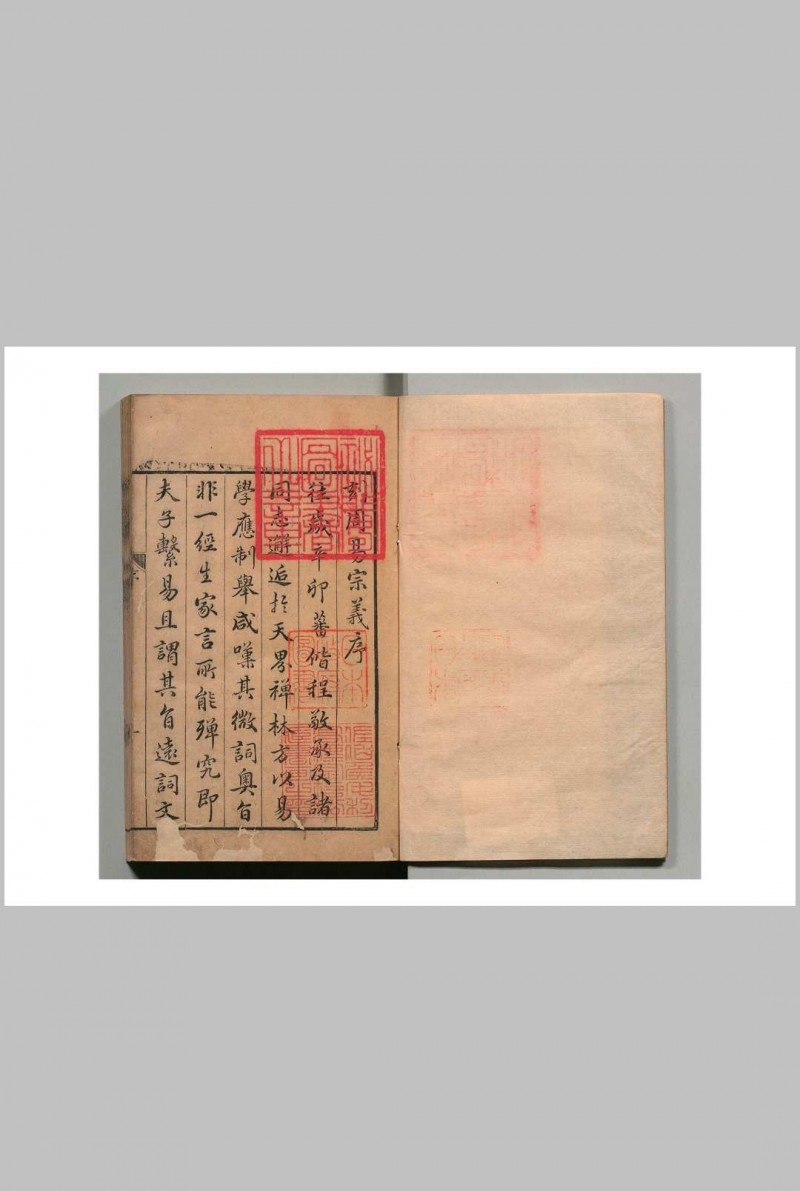 刻周易宗義序
往歲辛卯蕃偕程敬承及諸
同志邂逅於天界禪林方以易
學應制舉咸嘆其微詞奧旨
非一經生家言所能殫究即
夫子繫易且謂其旨遠詞文